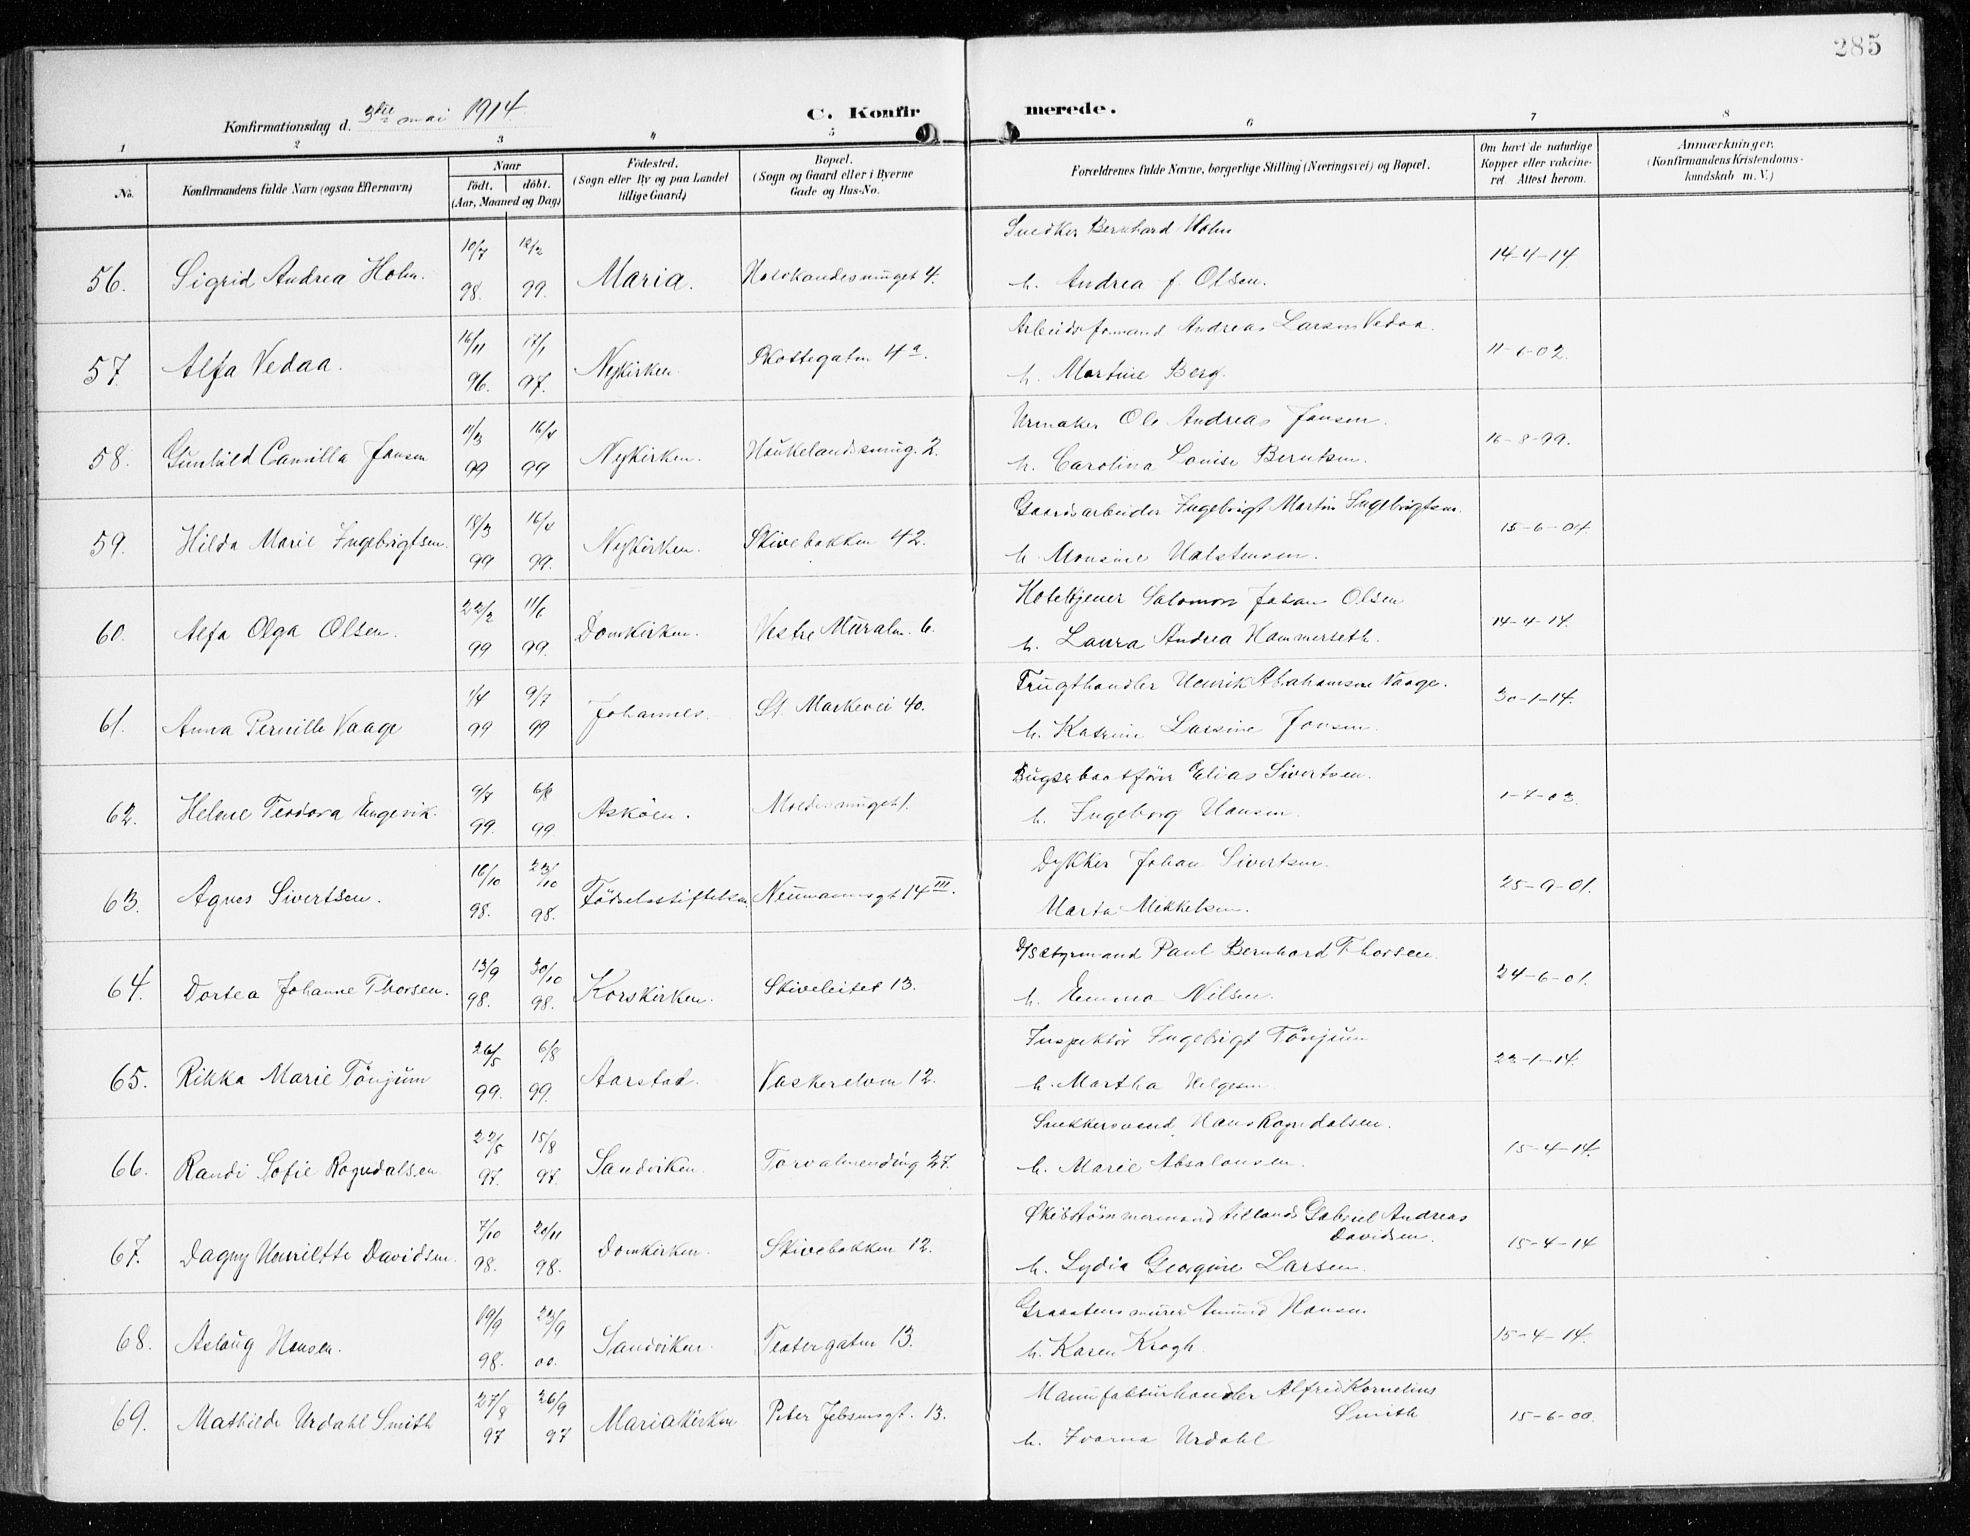 285
Konfirmationsdag d. 3die mai 1914.
C. Konfirmerede.
1 2 3 4 5 6 7 8
No.
Konfirmandens fulde Navn (ogsaa Efternavn)
Naar
født. døbt.
(Aar, Maaned og Dag)
Fødested.
(Sogn eller By og paa Landet
tillige Gaard)
Bopæl.
(Sogn og Gaard eller i Byerne
Gade og Hus-No.
Forældrenes fulde Navne, borgerlige Stilling (Næringsvei) og Bopæl.
Om havt de naturlige
Kopper eller vakcine-
ret. Attest herom.
Anmærkninger.
(Konfirmandens Kristendoms-
kundskab m. V.)
Snedker Bernhard Holm
56. Sigrid Andrea Holm. 10/7 98. 12/2 99. Maria. 4. 14-4-14.
h. Andrea f. Olsen.
Arbeidsformand Andreas Larsen Vedaa.
57. Alfa Vedaa. 16/11 96. 17/1 97. Nykirken. 4a. 11-6-02.
h. Martine Berg.
Urmaker Ole Andreas Jansen.
58. Gunhild Camilla Jansen 11/3 99 16/4 99 Nykirken. Haukelandssmug. 2. 16-8-99.
h. Carolina Louise Berntsen.
Gaardsarbeider Ingebrigt Martin Ingebrigtsen.
59. Hilda Marie Ingebrigtsen. 18/3 99 16/4 99. Nykirken. Skivebakken 42. 15-6-04.
h. Monsine Halstensen.
Hoteltjener Salomon Johan Olsen
60. Alfa Olga Olsen. 22/2 99 11/6 99. Domkirken. Vestre Muralm. 6. 14-4-14.
h. Laura Andrea Hammerseth.
Frugthandler Henrik Abahamsen Vaage.
61. Anna Pernille Vaage 1/4 99 9/7 99 Johannes. St. Markevei 40. 30-1-14.
h. Katrine Larsine Jonsen.
Bugserbaatfører Elias Sivertsen.
62. Helene Teodora Engevik. 9/7 99. 6/8 99 Askøen. 1. 1-7-03.
h. Ingeborg Hansen.
Dykker Johan Sivertsen.
63. Agnes Sivertsen. 16/10 98. 23/10 98. Fødselsstiftelsen Neumannsgt 14 III. 25-9-01.
Marta Mikkelsen.
D/S styrmand Paul Bernhard Thorsen.
64. Dortea Johanne Thorsen. 13/9 98. 30/10 98. Korskirken. Skiveleitet 13. 24-6-01.
h. Emma Nilsen.
Inspektør Ingebrigt Tønjum
65. Rikka Marie Tønjum 26/5 99. 6/8 99. Aarstad. Vaskerelven 12. 22-1-14.
h. Martha Helgesen
Snekkersvend Hans Rogndalsen.
66. Randi Sofie Rogndalsen 22/5 97. 15/8 97. Sandviken. Torvalmending 27. 15-4-14.
h. Marie Absalonsen.
Skibstømmermand tillands Gabriel Andreas
Davidsen.
67. Dagny Henriette Davidsen. 7/10 98. 20/11 98. Domkirken. Skivebakken 12. 15-4-14
h. Lydia Georgine Larsen.
Graastensmurer Amund Hansen
68. Aslaug Hansen. 19/9 98. 23/9 00. Sandviken. Teatergaten 13. 15-4-14.
h. Karen Krogh.
Manufakturhandler Alfred Kornelius
Smith
69. Mathilde Urdahl Smith 27/8 97 26/9 97 Mariakirken Peter Jebsensgt. 13. 15-6-00.
h. Ivarna Urdahl